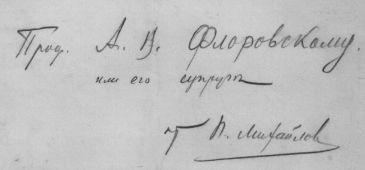 Проф. А. В. Флоровскому.
или его супруги
П. Михайлов